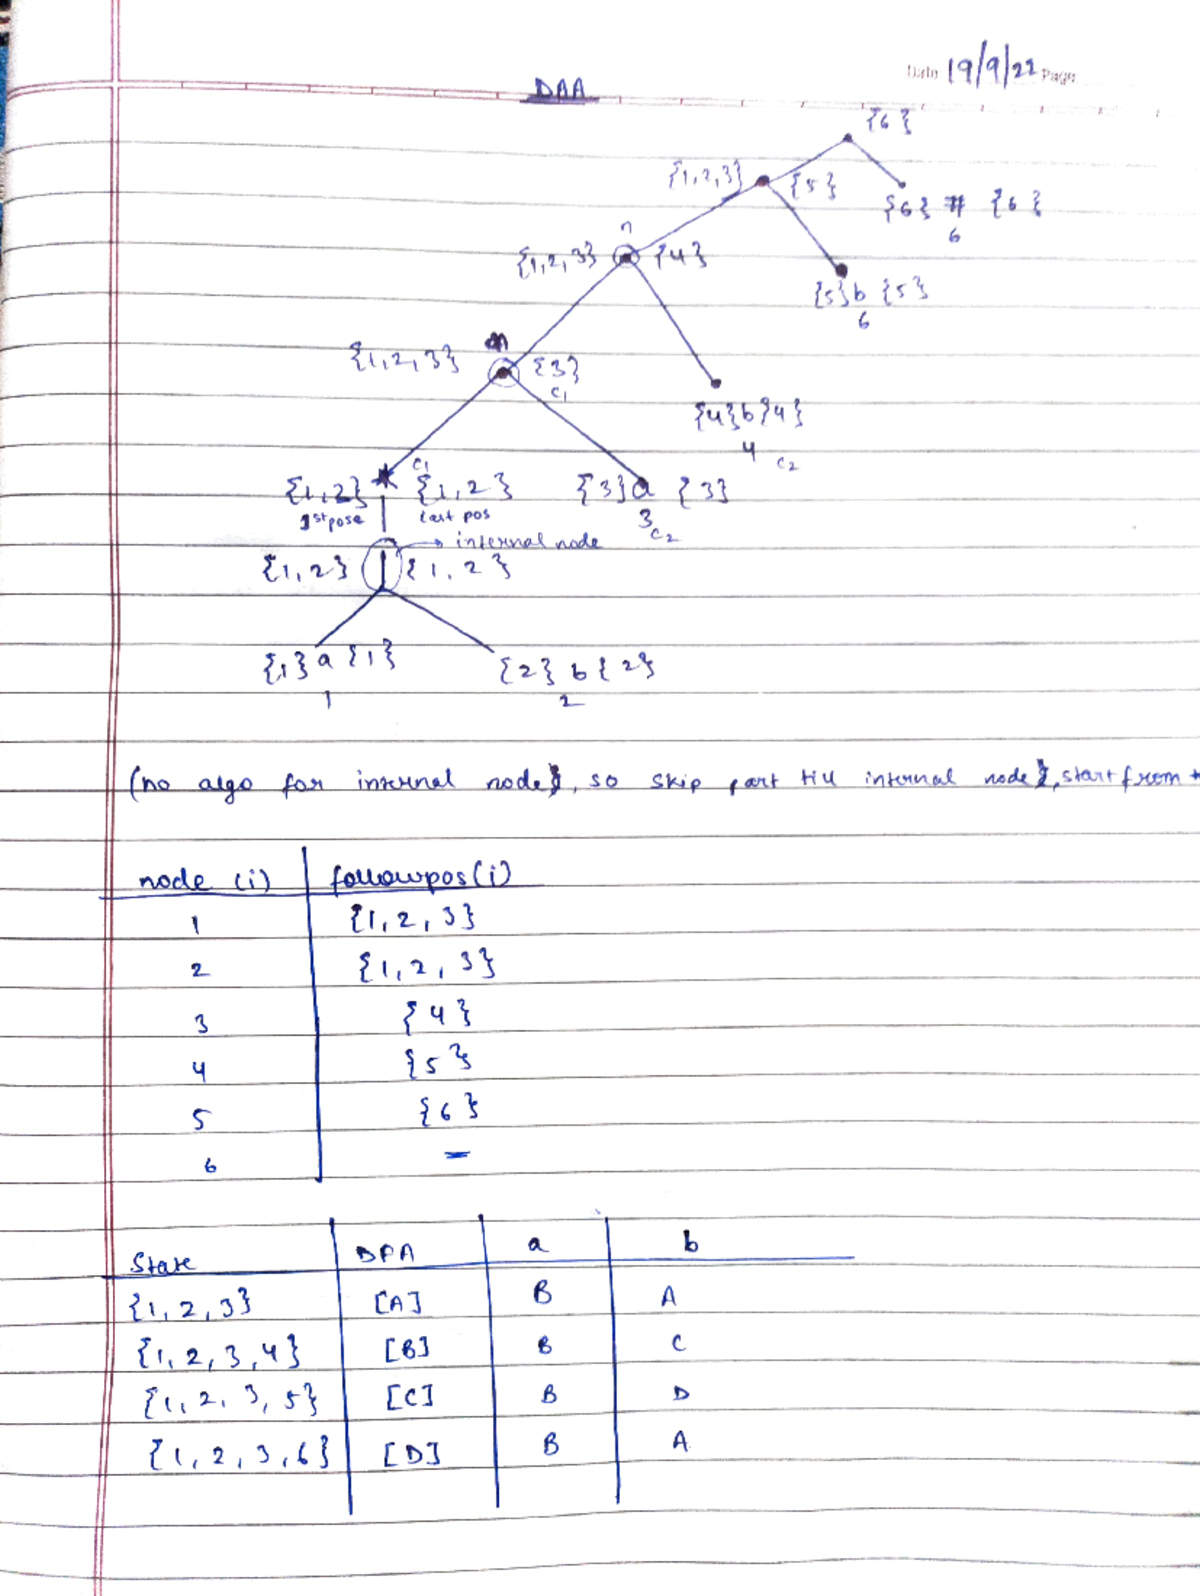 Date 19/9/22 Page
DAA
{6}
{1,2,3} {5}
{6} # {6}
6
n
{1,2,3} {4}
{5} b {5}
6
{1,2,3} {3}
c1
{4} b {4}
4 c2
c1
{1,2} * {1,2} {3} a {3}
1st pose last pos 3 c2
→ internal node
{1,2} | {1,2}
{1} a {1} {2} b {2}
1 2
(no algo for internal node, so skip part till internal node, start from *
node (i) followpos(i)
1 {1,2,3}
2 {1,2,3}
3 {4}
4 {5}
5 {6}
6 —
State DFA a b
{1,2,3} [A] B A
{1,2,3,4} [B] B C
{1,2,3,5} [C] B D
{1,2,3,6} [D] B A